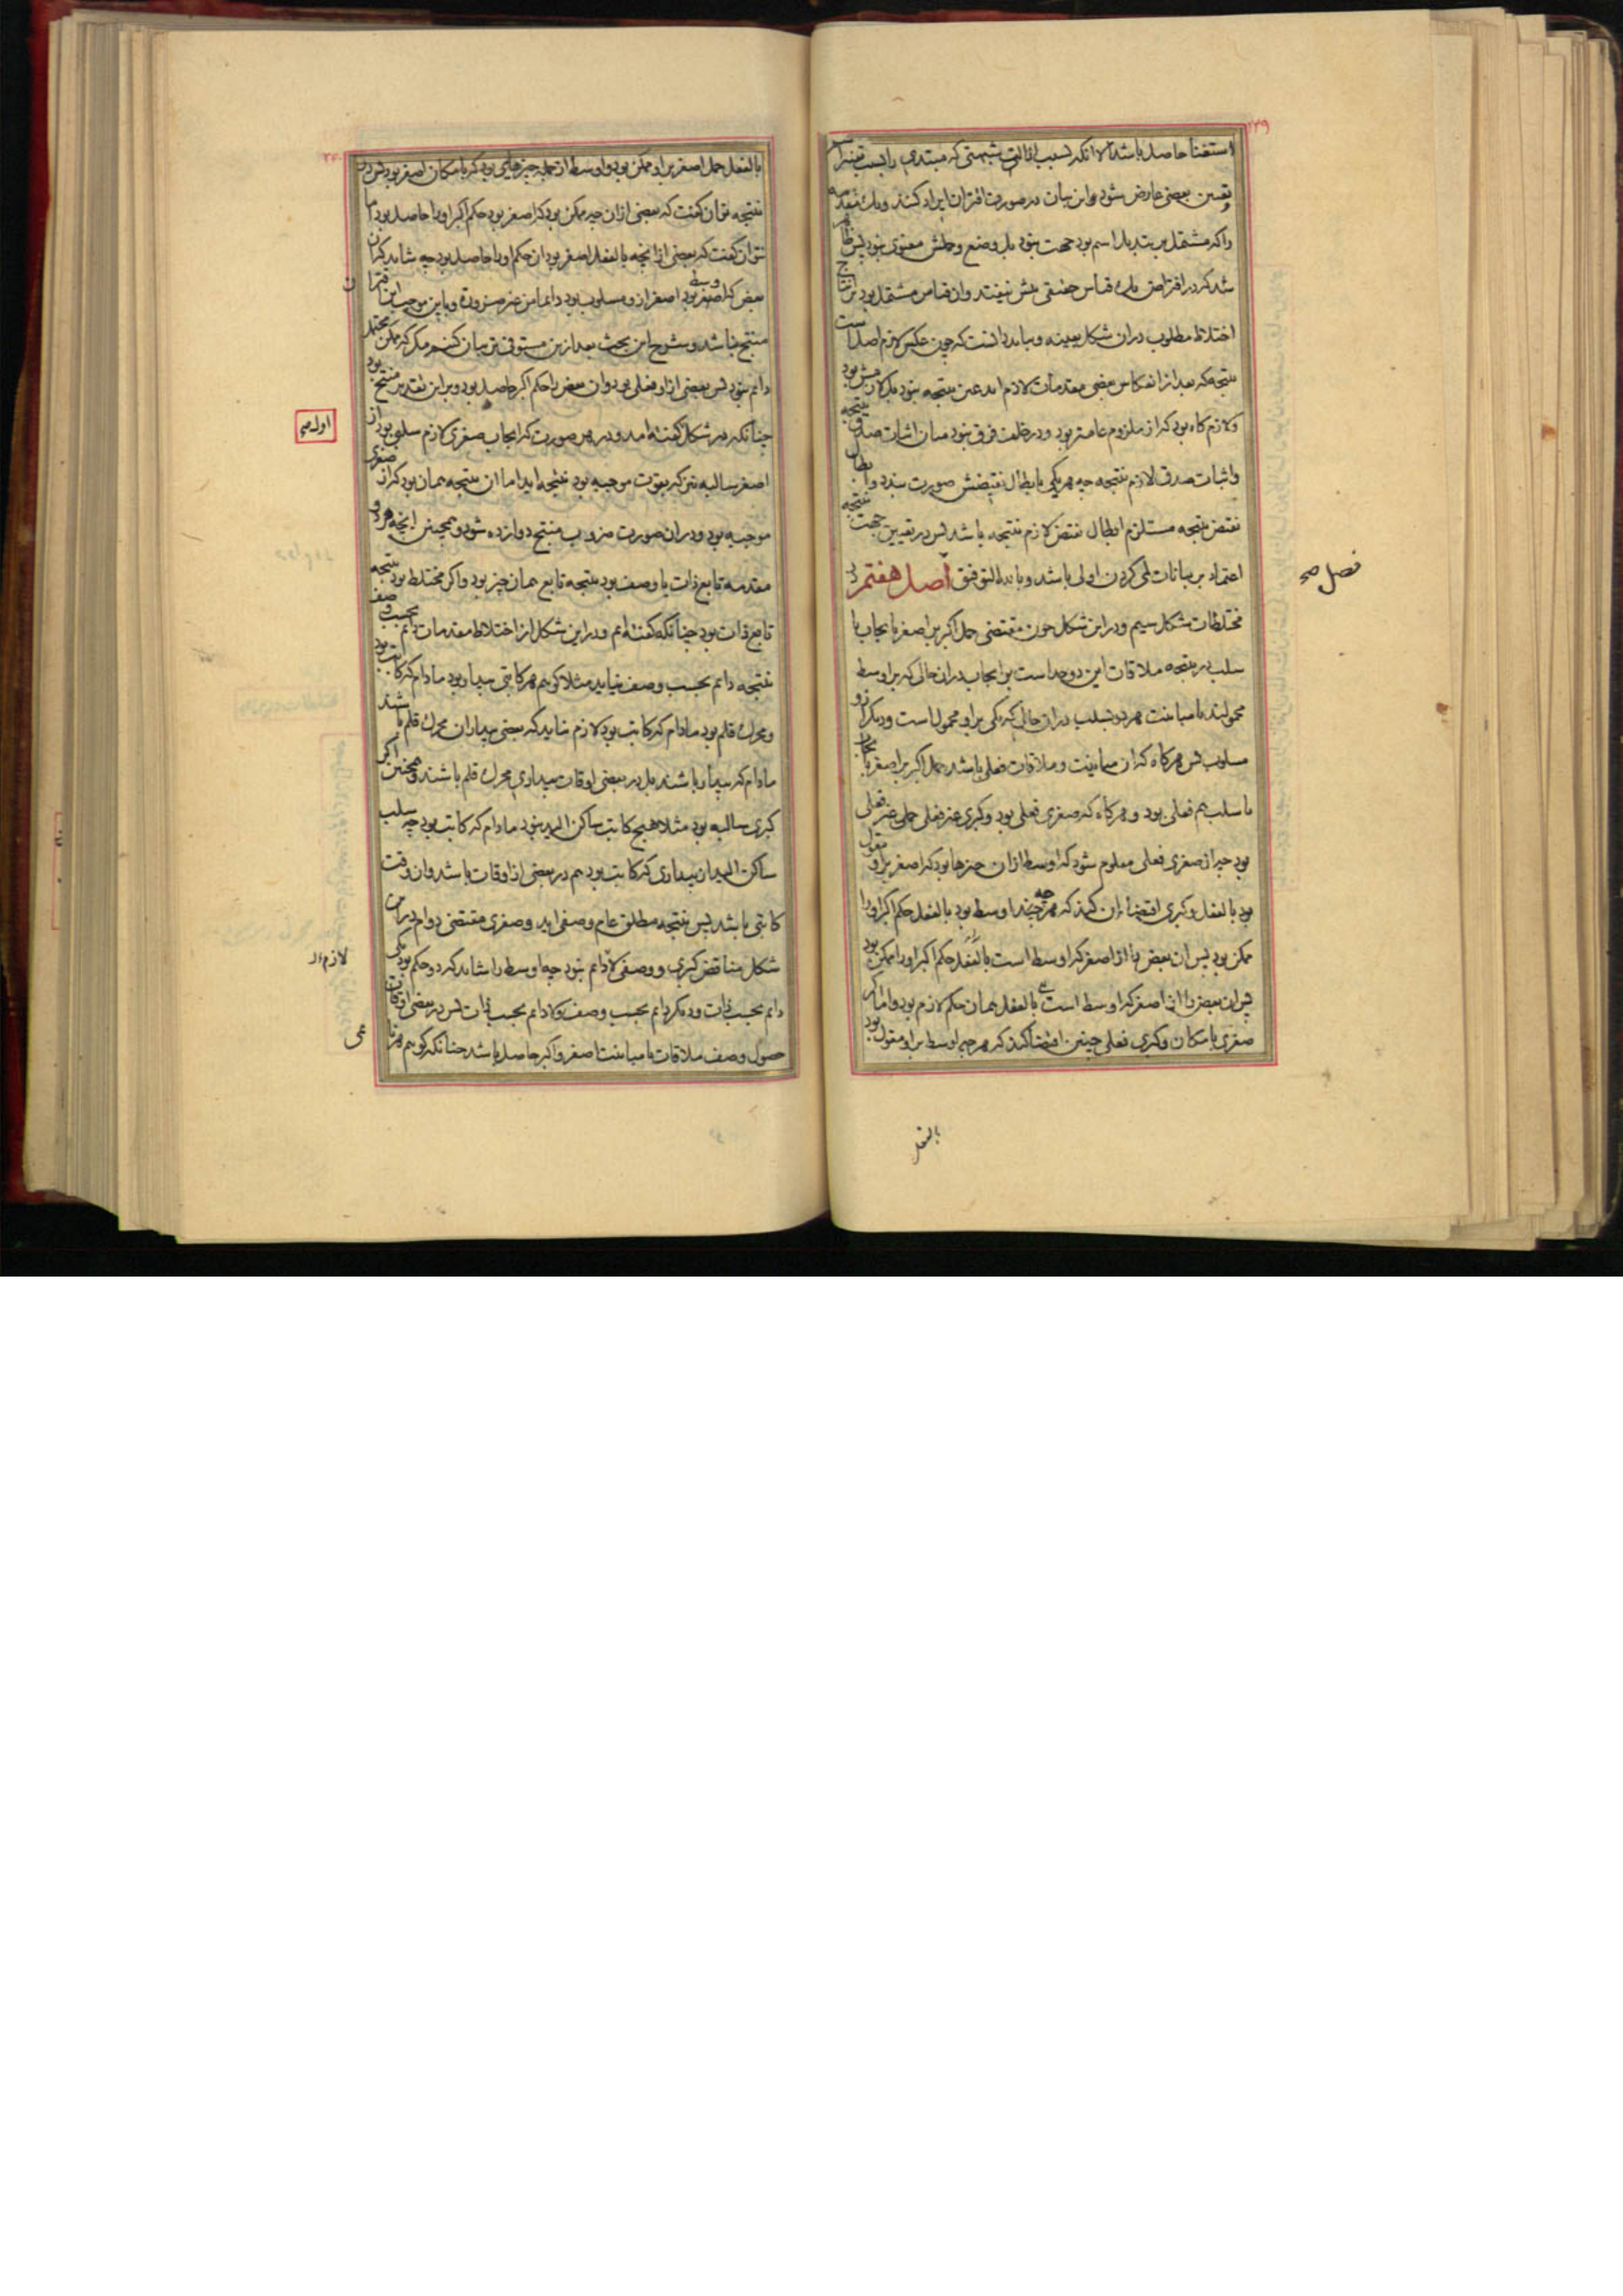 ۲۳۹
استغنا حاصل باشد الا آنکه بسبب ازالت شبهتی که مبتدی را بسبب تغییر
تعیین بعضی عارض شود این بیان در صورت افتراض ایراد کنند ویک مقدمه
را که مشتمل بر تبدیل اسم بود جهت نبود بل وضع و حملش معنوی نبود پس ظاهر
شد که در افتراض یک قیاس حقیقی بیش نیفتد وان قیاس مشتمل بود بر انتاج
اختلاط مطلوب دران شکل بعینه و بباید دانست که چون عکس لازم اصل است
نتیجه که بعد از انعکاس بعضی مقدمات لازم آمد عین نتیجه نبود بل لازمش بود
ولازم گاه بود که از ملزوم عامتر بود و در خلف فرق نبود میان اثبات صدق نتیجه
واثبات صدق لازم نتیجه چه هر یکی با بطال نقیضش صورت بندد وابطال
نقیض نتیجه مستلزم ابطال نقیض لازم نتیجه باشد پس در تعیین جهت نتیجه
اعتماد بر بیانات لمی کردن اولی باشد و بالله التوفیق اصل هفتم در
فصل صح
مختلطات شکل سیم و درین شکل چون مقتضی حمل اکبر بر اصغر بایجاب یا
سلب در نتیجه ملاقات این دو حد است بایجاب دران حالی که بر اوسط
محمولند یا مباینت هردو بسلب دران حالی که یکی برو محمول است و دیگر ازو
مسلوب پس هرگاه که ان مباینت و ملاقات فعلی باشد حمل اکبر بر اصغر بایجاب
یا سلب هم فعلی بود و هرگاه که صغری فعلی بود و کبری غیر فعلی حملی غیر فعلی
بود چه از صغری فعلی معلوم شود که اوسط ازان چیزها بود که اصغر برو مقول
بود بالفعل و کبری اقتضاء ان کند که هرچه اوسط بود بالفعل حکم اکبر اورا
ممکن بود پس ان بعض را از اصغر که اوسط است بالفعل حکم اکبر اورا ممکن بود
پس ان بعض را از اصغر که اوسط است بالفعل همان حکم لازم بود واما اگر
صغری بامکان و کبری فعلی چنین اقتضا کند که هرچه اوسط برو مقول بود
بالفعل
۲۴۰
بالفعل حمل اصغر برو ممکن بود واوسط از جمله چیزهایی بود که بامکان اصغر بود پس در
نتیجه توان گفت که بعضی ازان چه ممکن بود که اصغر بود حکم اکبر اورا حاصل بود اما
نتوان گفت که بعضی از آنچه بالفعل اصغر بود ان حکم اورا حاصل بود چه شاید که ان
بعض که اوسط بود اصغر ازو مسلوب بود دائما من غیر ضرورة و باین موجب این اقتران
منتج نباشد و شرح این بحث بعد ازین مستوفی تر بیان کنیم مگر که ممکن محتمل
دائم نبود پس بعضی ازو فعلی بود وان بعض را حکم اکبر حاصل بود و برین تقدیر منتج بود
چنانکه در شکل گفته امد و در هر صورت که ایجاب صغری لازم سلب بود از
اول صح
اصغر سالبه نیز که بقوت موجبه بود نتیجه اید اما ان نتیجه همان بود که از صغری
موجبه بود و دران صورت ضروب منتج دوازده شود و همچنین انچه هر دو
مقدمه تابع ذات یا وصف بود نتیجه تابع همان چیز بود و اگر مختلط بود نتیجه
تابع ذات بود چنانکه گفته ام و درین شکل از اختلاط مقدمات دائم بحسب وصف
نتیجه دائم بحسب وصف نیاید مثلا گوییم هر کاتبی بیدار بود مادام که کاتب بود
ومحرک قلم بود مادام که کاتب بود لازم نیاید که بعضی بیداران محرک قلم باشند
مادام که بیدار باشند بل در بعضی اوقات بیداری محرک قلم باشند و همچنین اگر
کبری سالبه بود مثلا هیچ کاتب ساکن الید نبود مادام که کاتب بود چه سلب
ساکن الید ازان بیداری که کاتب بود هم در بعضی از اوقات باشد وان وقت
کاتبی باشد پس نتیجه مطلق عام وصفی اید و صغری مقتضی دوام درین
شکل مناقض کبری و وصفی لادائم نبود چه اوسط را شاید که دو حکم بود یکی
لازم
دائم بحسب ذات و دیگر دائم بحسب وصف ولادائم بحسب ذات پس در بعضی اوقات
حصول وصف ملاقات یا مباینت اصغر و اکبر حاصل باشد چنانکه گوییم هر